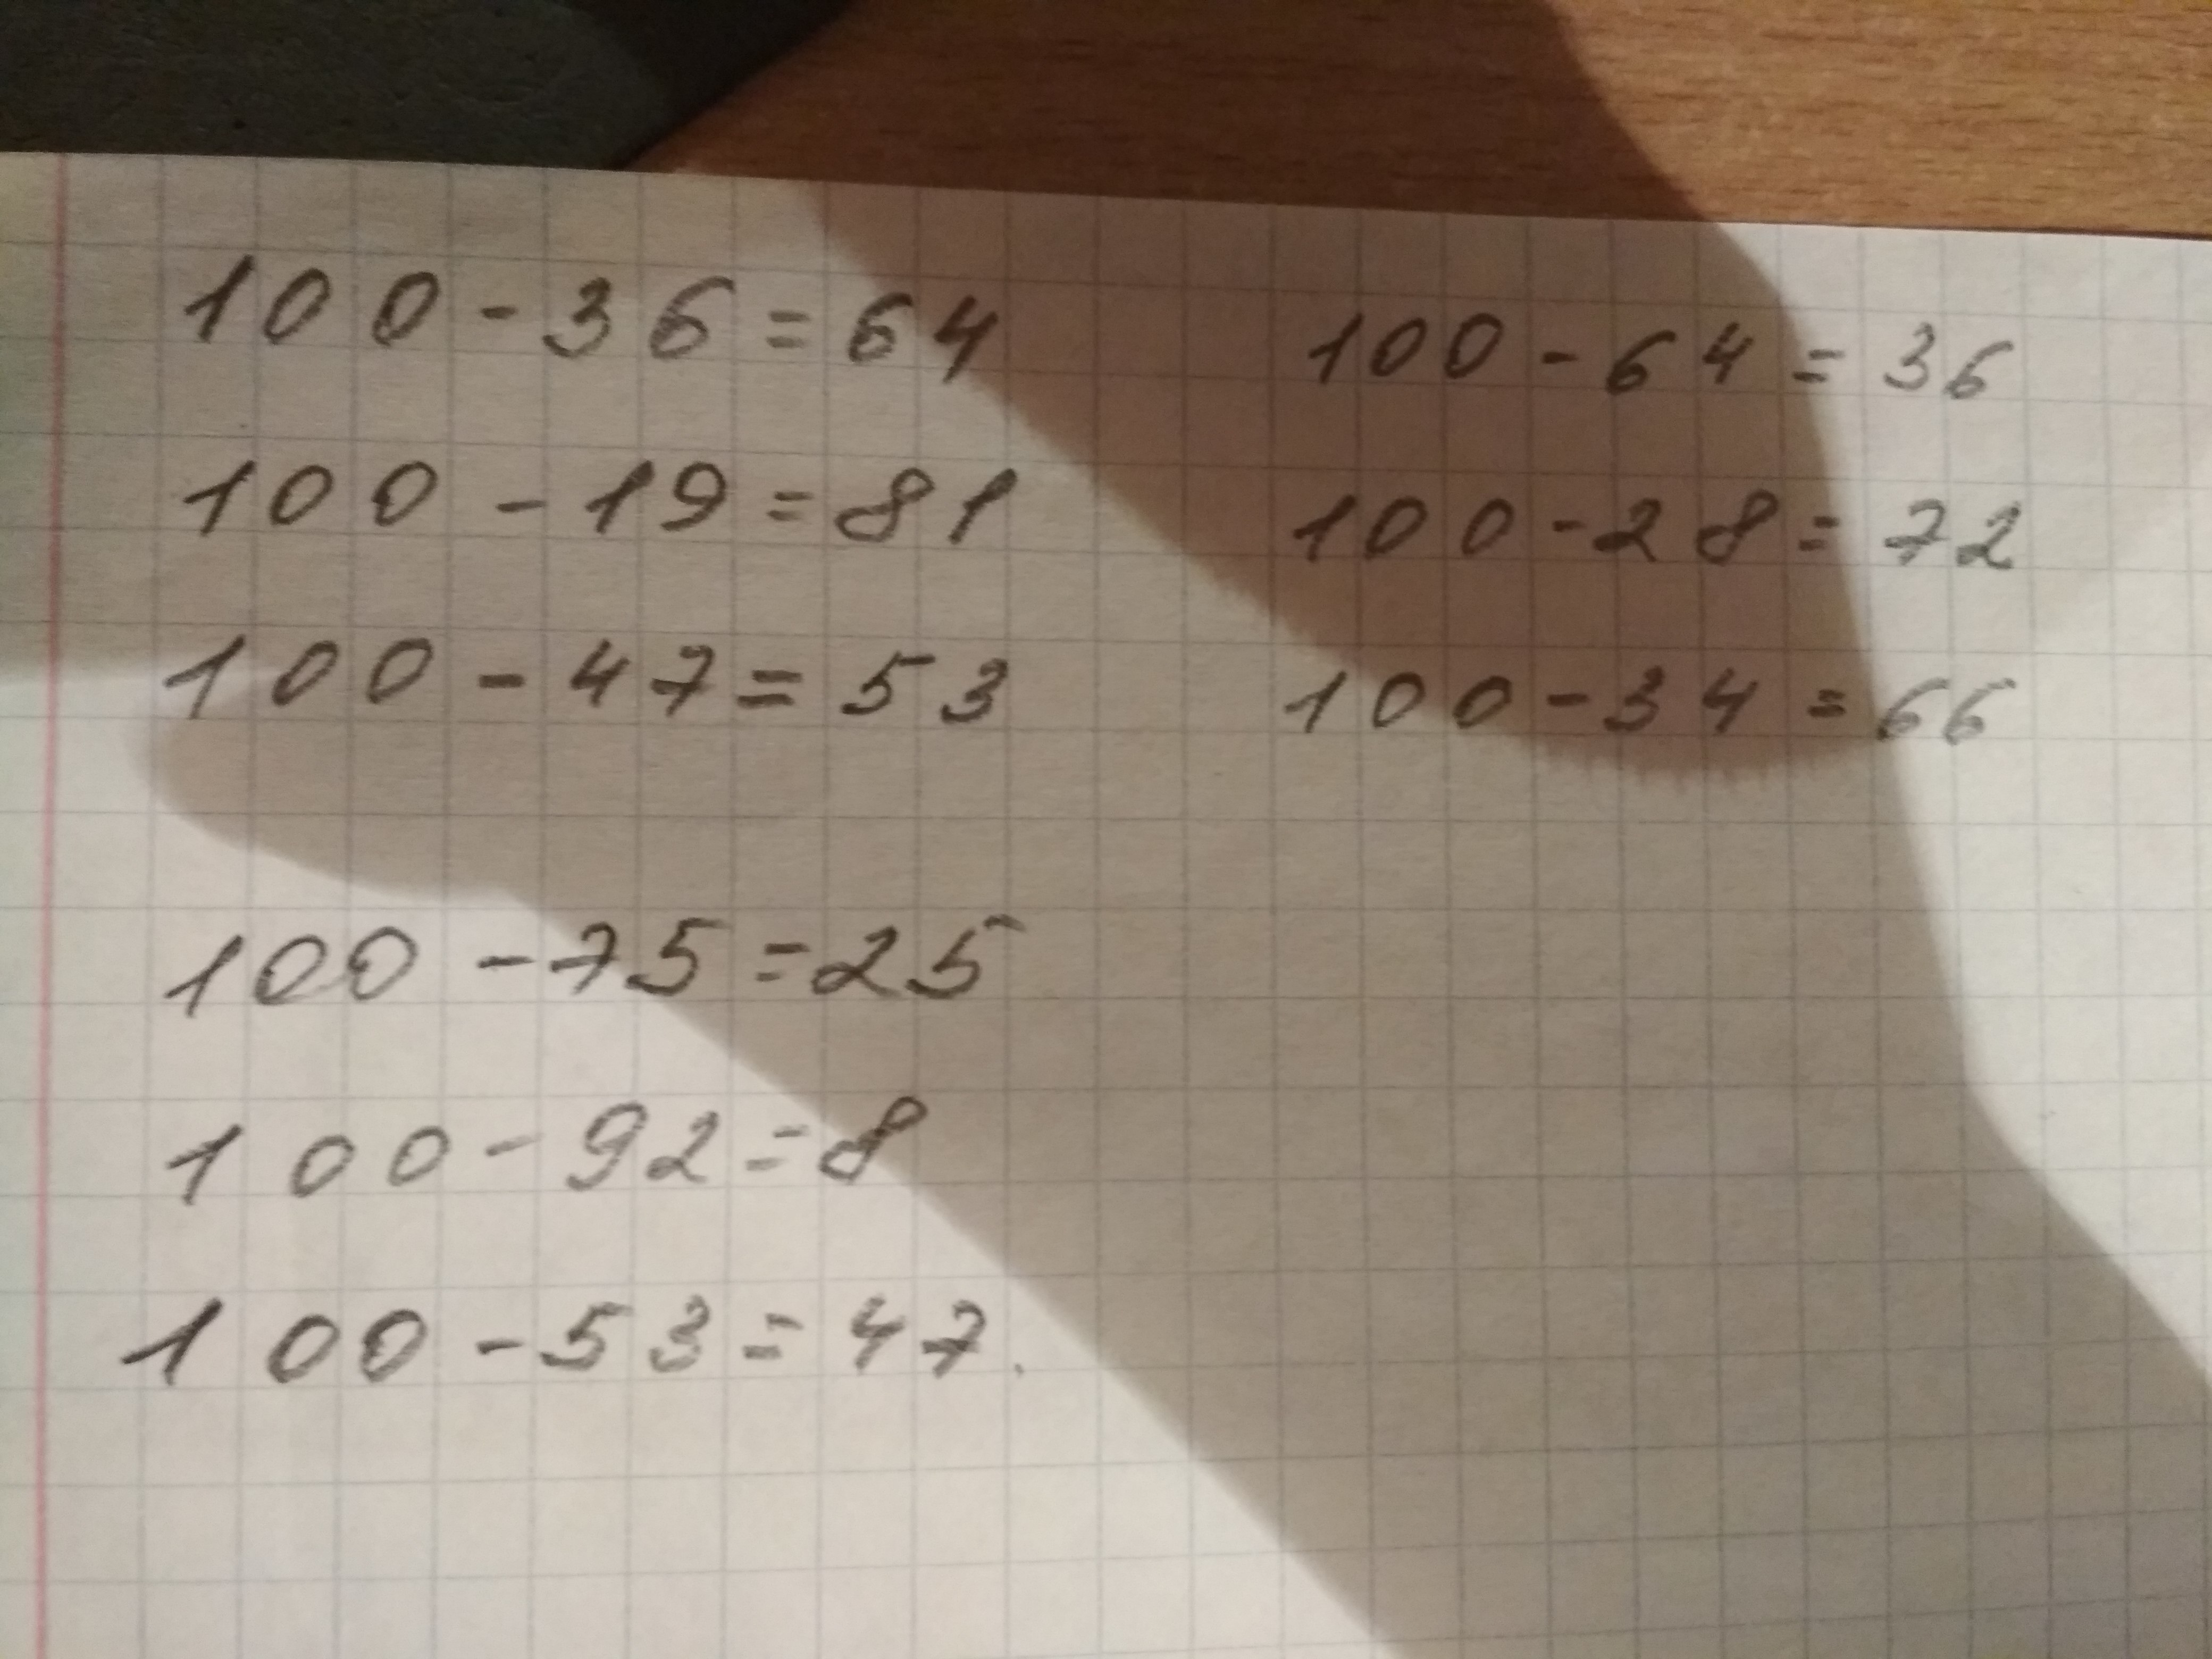 100 - 36 = 64
100 - 19 = 81
100 - 47 = 53
100 - 75 = 25
100 - 92 = 8
100 - 53 = 47.
100 - 64 = 36
100 - 28 = 72
100 - 34 = 66